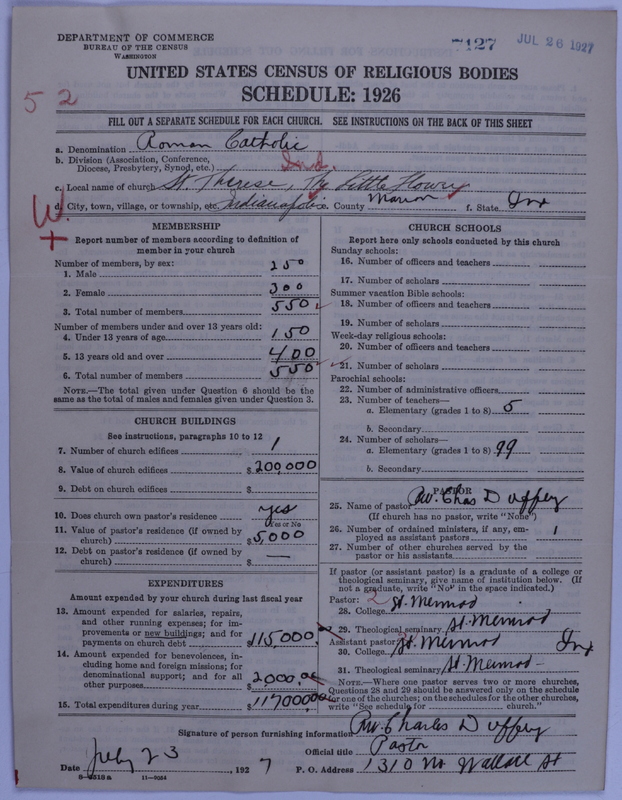 DEPARTMENT OF COMMERCE
BUREAU OF THE CENSUS
WASHINGTON
7127 JUL 26 1927
UNITED STATES CENSUS OF RELIGIOUS BODIES
SCHEDULE: 1926
52
FILL OUT A SEPARATE SCHEDULE FOR EACH CHURCH. SEE INSTRUCTIONS ON THE BACK OF THIS SHEET
a. Denomination Roman Catholic
b. Division (Association, Conference,
Diocese, Presbytery, Synod, etc.) Ind.
c. Local name of church St. Therese, The Little Flower
d. City, town, village, or township, etc. Indianapolis e. County Marion f. State Ind
W
+
MEMBERSHIP
Report number of members according to definition of
member in your church
Number of members, by sex:
1. Male 250
2. Female 300
3. Total number of members 550
Number of members under and over 13 years old:
4. Under 13 years of age 150
5. 13 years old and over 400
6. Total number of members 550
NOTE.—The total given under Question 6 should be
same as the total of males and females given under Question 3.
CHURCH BUILDINGS
See instructions, paragraphs 10 to 12
7. Number of church edifices 1
8. Value of church edifices $200,000
9. Debt on church edifices $
10. Does church own pastor's residence yes
Yes or No
11. Value of pastor's residence (if owned by
church) $5,000
12. Debt on pastor's residence (if owned by
church) $ —
EXPENDITURES
Amount expended by your church during last fiscal year
13. Amount expended for salaries, repairs,
and other running expenses; for im-
provements or new buildings; and for
payments on church debt $115,000.
14. Amount expended for benevolences, in-
cluding home and foreign missions; for
denominational support; and for all
other purposes $2000.00
15. Total expenditures during year $117000.00
CHURCH SCHOOLS
Report here only schools conducted by this church
Sunday schools:
16. Number of officers and teachers
17. Number of scholars
Summer vacation Bible schools:
18. Number of officers and teachers
19. Number of scholars
Week-day religious schools:
20. Number of officers and teachers
21. Number of scholars
Parochial schools:
22. Number of administrative officers
23. Number of teachers—
a. Elementary (grades 1 to 8) 5
b. Secondary
24. Number of scholars—
a. Elementary (grades 1 to 8) 99
b. Secondary
PASTOR
25. Name of pastor Rev. Chas Duffey
(If church has no pastor, write "None")
26. Number of ordained ministers, if any, em-
ployed as assistant pastors 1
27. Number of other churches served by the
pastor or his assistants
If pastor (or assistant pastor) is a graduate of a college or
theological seminary, give name of institution below. (If
not a graduate, write "No" in the space indicated.)
Pastor: 2
28. College St. Meinrad
29. Theological seminary St. Meinrad
Assistant pastor:
30. College St. Meinrad Ind
31. Theological seminary St. Meinrad
NOTE.—Where one pastor serves two or more churches,
Questions 28 and 29 should be answered only on the schedule
for one of the churches; on the schedules for the other churches,
write "See schedule for church."
Signature of person furnishing information Rev. Charles Duffey
Official title Pastor
Date July 23, 1927 P. O. Address 1310 No Wallace St
8-2318a 11-9084